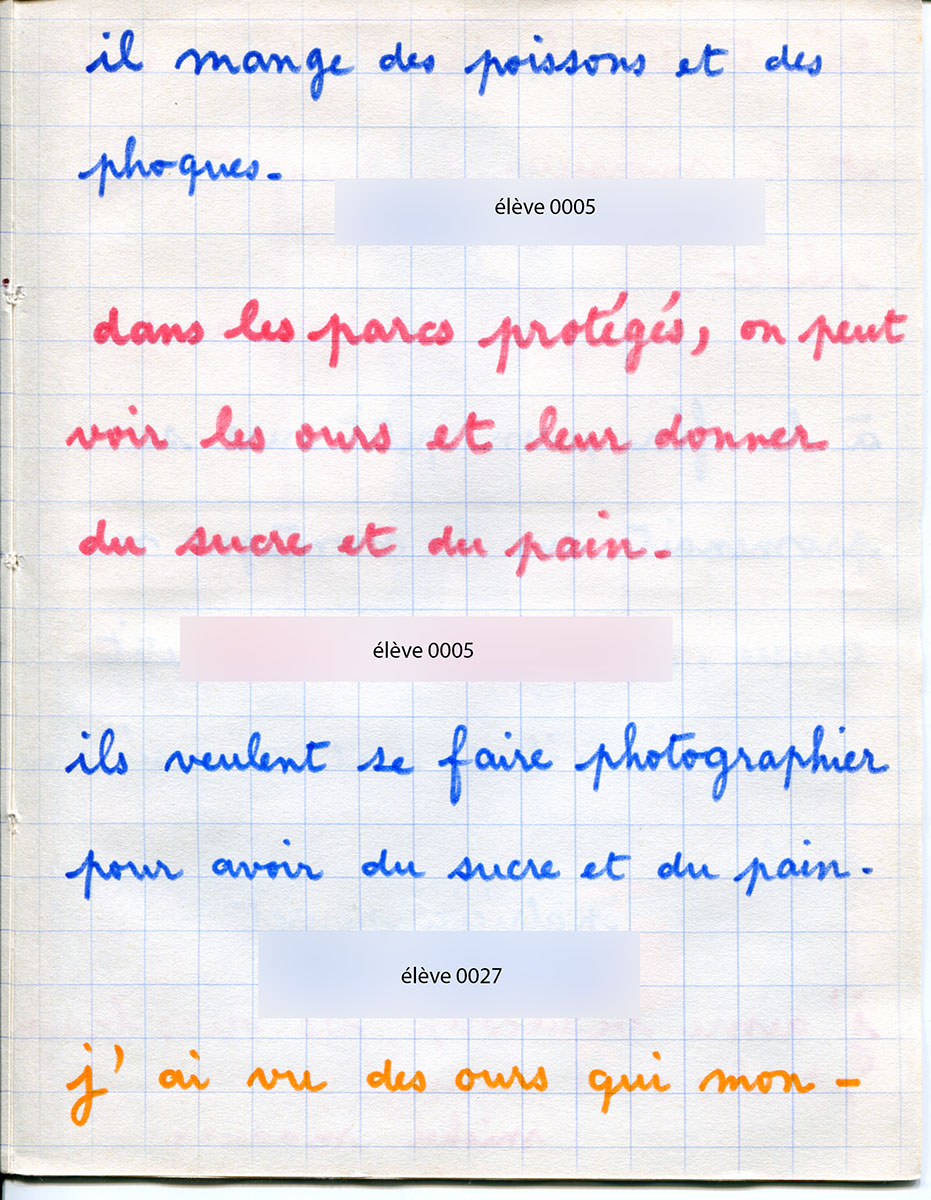 il mange des poissons et des
phoques.
élève 0005
dans les parcs protégés, on peut
voir les ours et leur donner
du sucre et du pain.
élève 0005
ils veulent se faire photographier
pour avoir du sucre et du pain.
élève 0027
j'ai vu des ours qui mon-